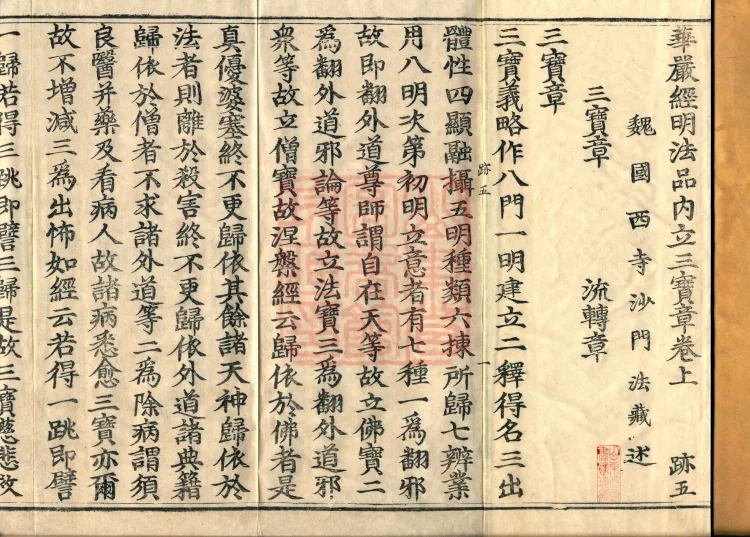 華嚴經明法品內立三寶章卷上　跡五
魏國西寺沙門法藏述
三寶章　流轉章
三寶章
三寶義略作八門一明建立二釋得名三出
體性四顯融攝五明種類六揀所歸七辨業
用八明次第初明立意者有七種一為翻邪
故即翻外道尊師謂自在天等故立佛寶二
為翻外道邪論等故立法寶三為翻外道邪
衆等故立僧寶故涅槃經云歸依於佛者是
真優婆塞終不更歸依其餘諸天神歸依於
法者則離於殺害終不更歸依外道諸典籍
歸依於僧者不求諸外道等二為除病謂須
良醫并藥及看病人故諸病悉愈三寶亦爾
故不增減三為出怖如經云若得一跳即譬
一歸若得三跳即譬三歸是故三寶慈悲故
跡五　一